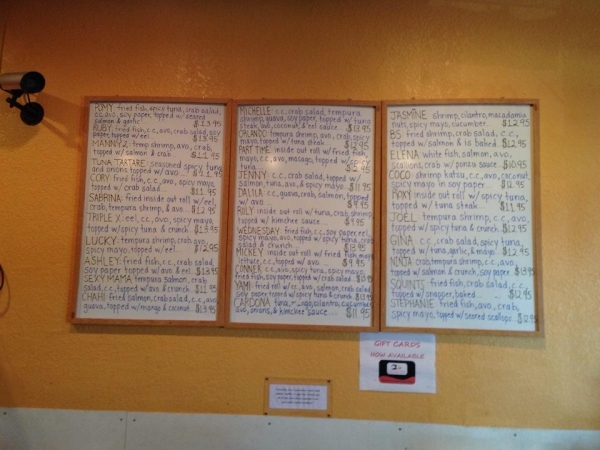 POMY: fried fish, spicy tuna, crab salad
c.c, avo, soy paper, topped w/ seared
salmon & garlic $13.95
RUBY: fried fish, c.c, avo, crab salad, soy
paper, topped w/ eel
MANNYZ: temp shrimp, avo, crab,
topped w/ salmon & crab
TUNA TARTARE: seasoned spicy tuna
and onions topped w/ avo
CORY: fried fish, c.c, avo, spicy mayo,
topped w/ crab salad $11.95
SABRINA: fried inside out roll w/ eel,
crab, tempura shrimp, & avo $12.95
TRIPLE X: eel, c.c, avo, spicy mayo,
topped w/ spicy tuna & crunch $13.95
LUCKY: tempura shrimp, crab, avo,
spicy mayo, topped w/ eel $12.95
ASHLEY: fried fish, c.c, crab salad,
soy paper topped w/ avo & eel $13.95
SEXY MAMA: tempura salmon, crab
salad, c.c, topped w/ avo & crunch $11.95
CHAHI: fried salmon, crab salad, c.c, avo,
guava, topped w/ mango & coconut $13.95
MICHELLE: c.c, crab salad, tempura
shrimp, guava, soy paper, topped w/ tuna
steak, avo, coconut, & eel sauce $13.95
ORLANDO: tempura shrimp, avo, crab, spicy
mayo, topped w/ tuna $12.95
PART TIME: inside out roll w/ fried fish,
mayo, c.c, avo, masago, topped w/ spicy
tuna
JENNY: c.c, crab salad, topped w/
salmon, tuna, avo, & spicy mayo $11.95
DALILA: c.c, guava, crab, salmon, topped
w/ avo
ROLY: inside out roll w/ tuna, crab, shrimp
topped w/ kimchee sauce $9.95
WEDNESDAY: fried fish, c.c, soy paper, eel,
spicy mayo, avo, topped w/ spicy tuna, crab
salad & crunch
MICKEY: inside out roll w/ fried fish, mayo,
lettuce, c.c, topped w/ avo $9.95
CONNER: c.c, avo, spicy tuna, spicy mayo,
fried fish, soy paper, topped w/ crab salad
YAMI: fried roll w/ c.c, avo, salmon, crab salad,
soy paper topped w/ spicy tuna & crunch
CARDONA: tuna, mango, cilantro, cucumber,
avo, onions, & kimchee sauce $11.95
JASMINE: shrimp, cilantro, macadamia
nuts, spicy mayo, cucumber $12.95
BS: fried shrimp, crab salad, c.c,
topped w/ salmon & is baked $12.95
ELENA: white fish, salmon, avo,
scallions, crab w/ ponzu sauce $10.95
COCO: shrimp katsu, c.c, avo, coconut,
spicy mayo in soy paper $12.95
inside out roll w/ spicy tuna,
topped w/ tuna steak
JOEL: tempura shrimp, c.c, avo,
topped w/ spicy tuna & crunch $12.95
GINA: c.c, crab salad, spicy tuna,
topped w/ tuna, garlic, & mayo $12.95
NINJA: crab, tempura shrimp, c.c, avo,
topped w/ salmon & crunch, soy paper $13.95
SQUINTS: fried fish, crab salad, c.c,
topped w/ snapper, baked $12.95
STEPHANIE: fried fish, avo, crab,
spicy mayo, topped w/ seared scallops $12.95
GIFT CARDS
NOW AVAILABLE